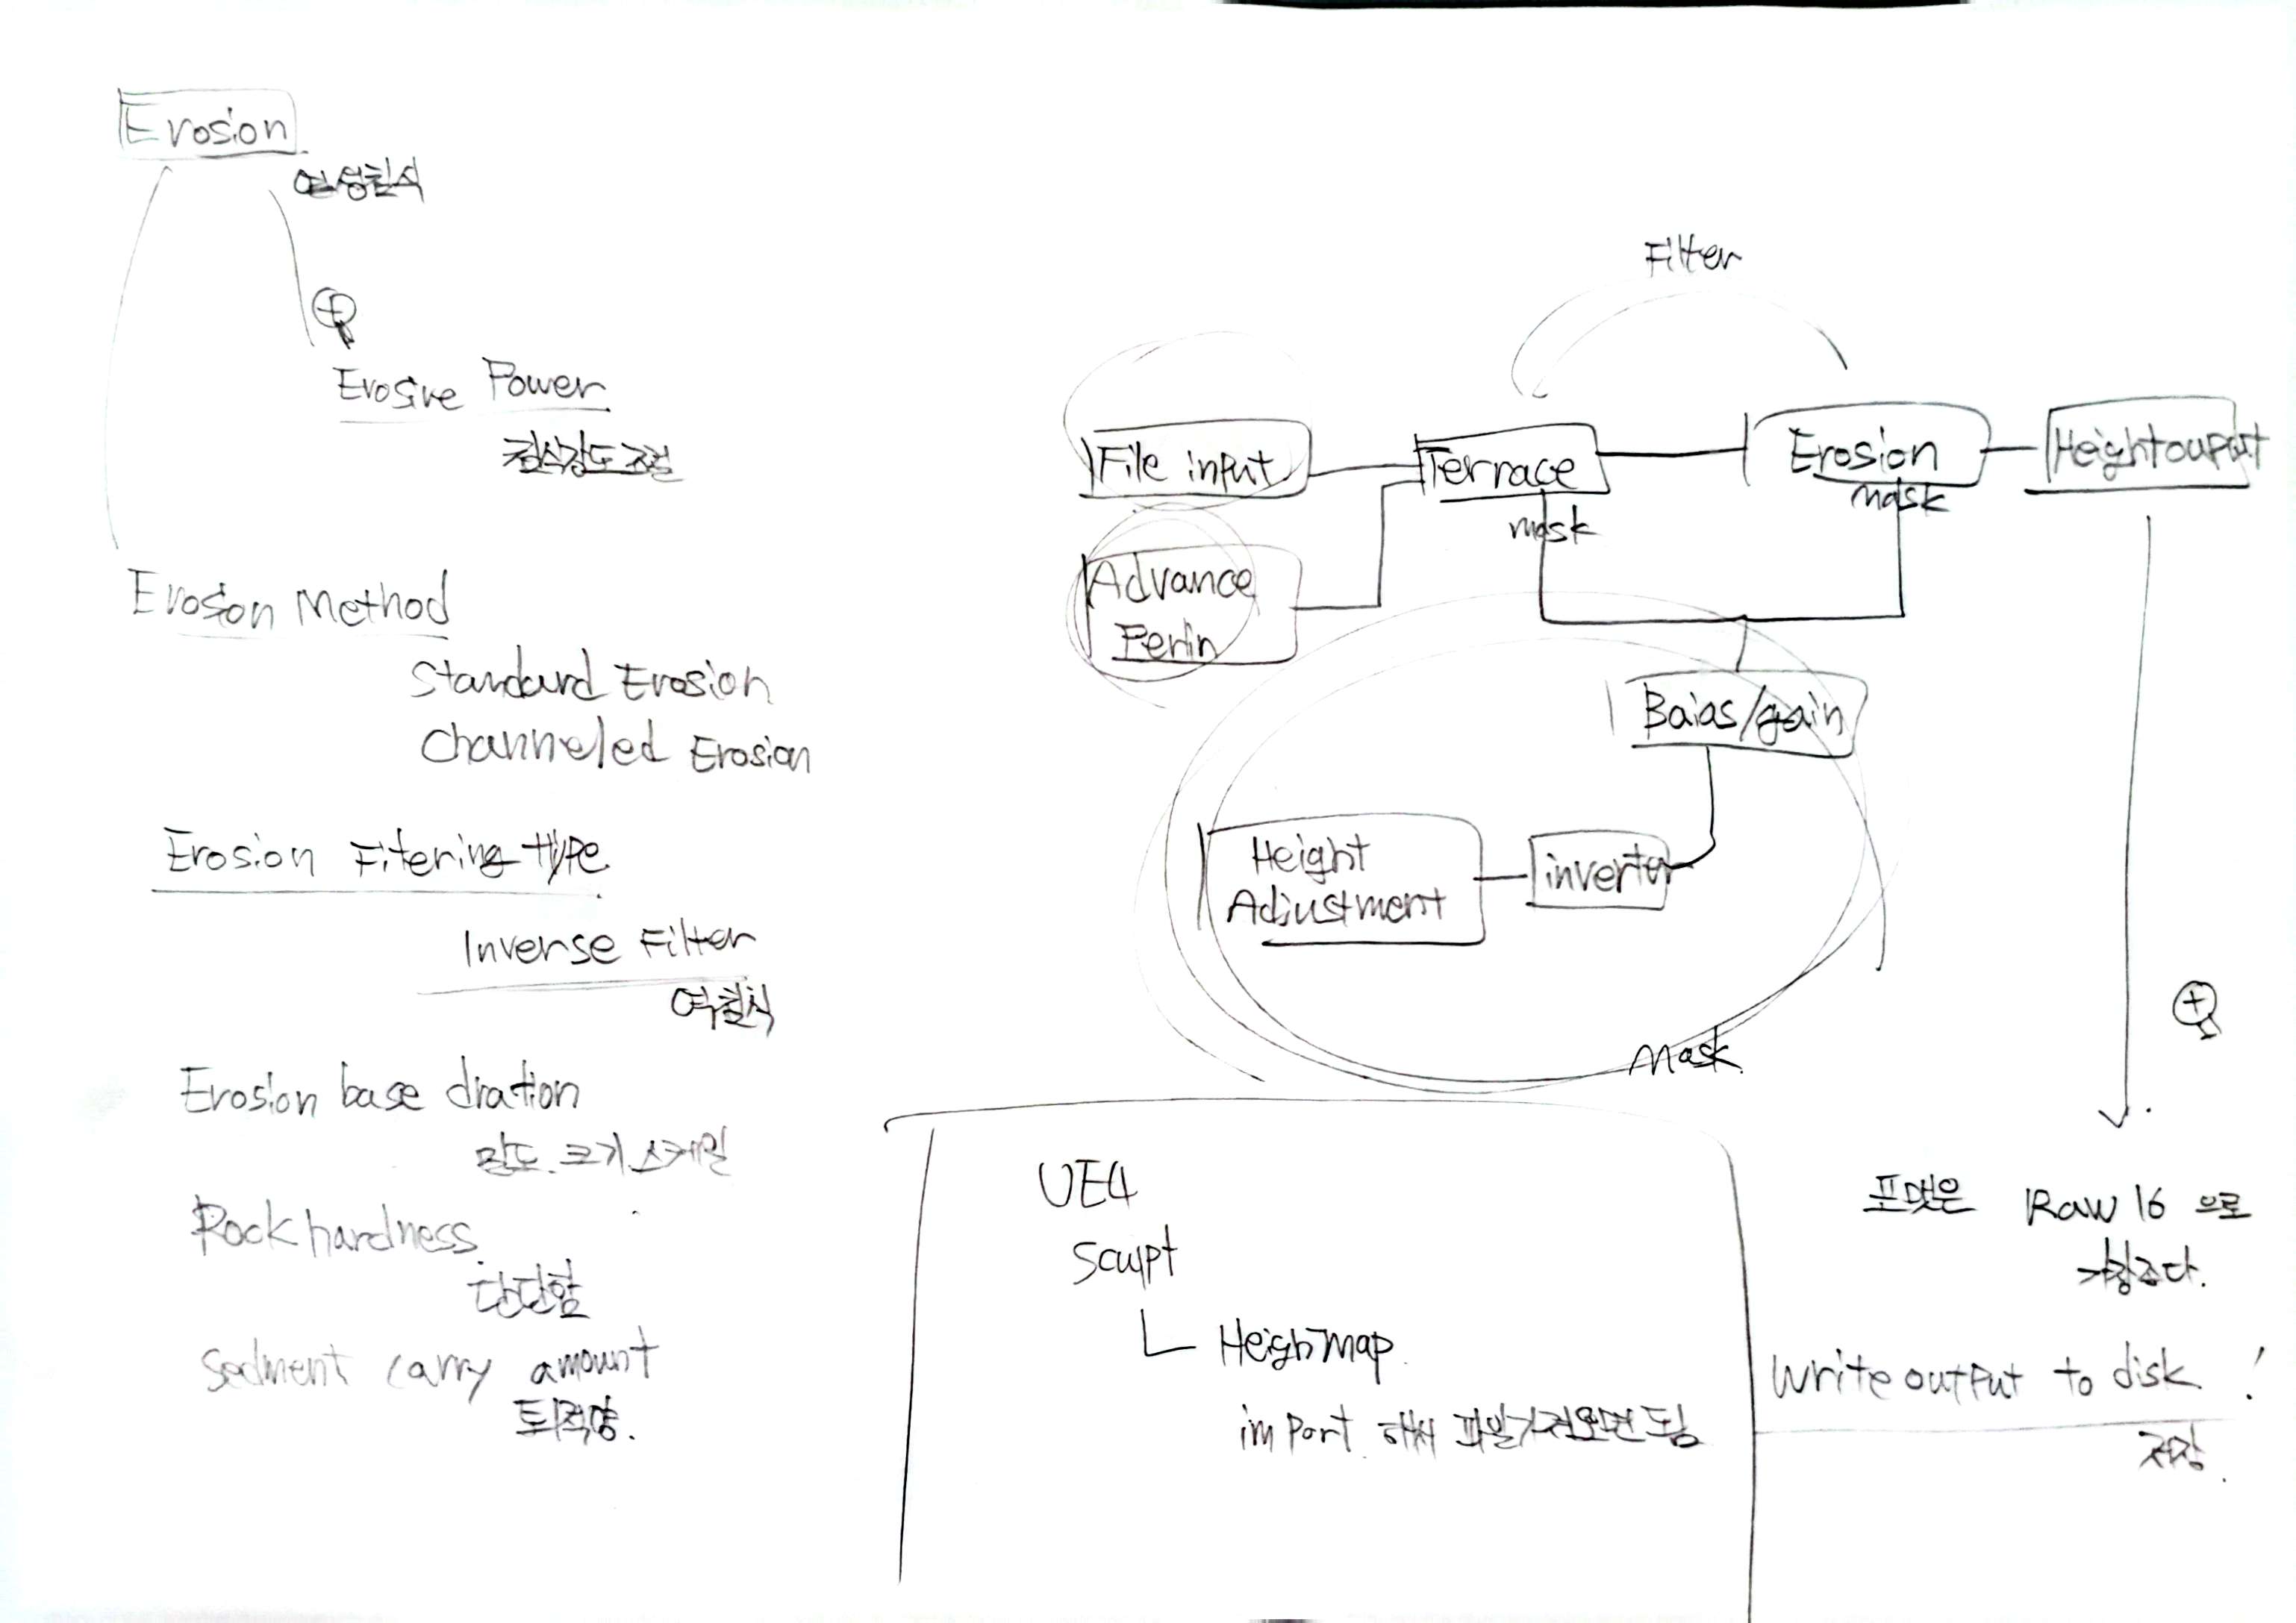 Erosion
Erosive Power
침식강도조절
Eroson Method
Standard Erosion
Channeled Erosion
Erosion Fitering type
Inverse Filter
역침식
Erosion base dration
밀도. 크기 스케일
Rock hardness
단단함
Sedment carry amount
퇴적양.
Filter
File input
Terrace
mask
Erosion
mask
Heightouput
Advance
Perlin
Baias/gain
Height
Adjustment
inverter
Mask.
UE4
Sculpt
HeighMap.
import 해서 파일가져오면 됨
포맷은 Raw 16 으로
가장좋다.
Write output to disk !
저장.